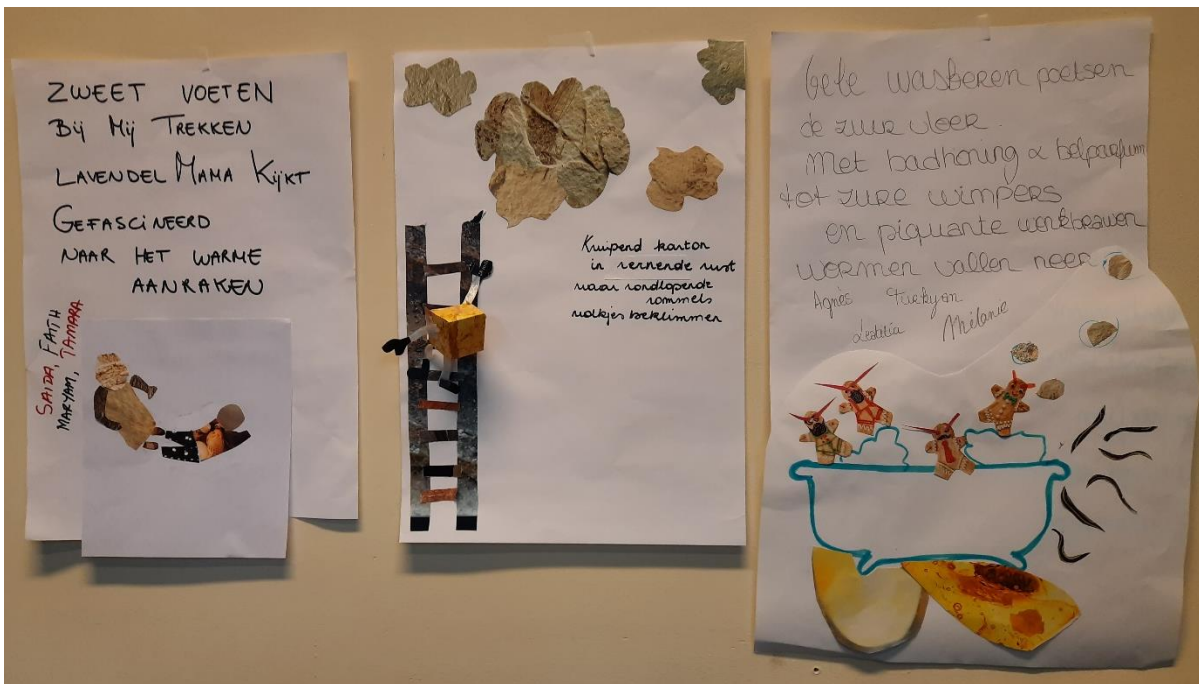 ZWEET VOETEN
BIJ MIJ TREKKEN
LAVENDEL MAMA KIJKT
GEFASCINEERD
NAAR HET WARME
AANRAKEN
SAIDA, FAITH
MARYAM, TAMARA
Kruipend karton
in rennende rust
naar rondlopende
rommels
rolkjes beklimmen
Gele wasberen poetsen
de zuur vloer.
Met badhoning & belparfum
tot zure wimpers
en piquante wenkbrauwen
wormen vallen neer
Agnès
Mélanie